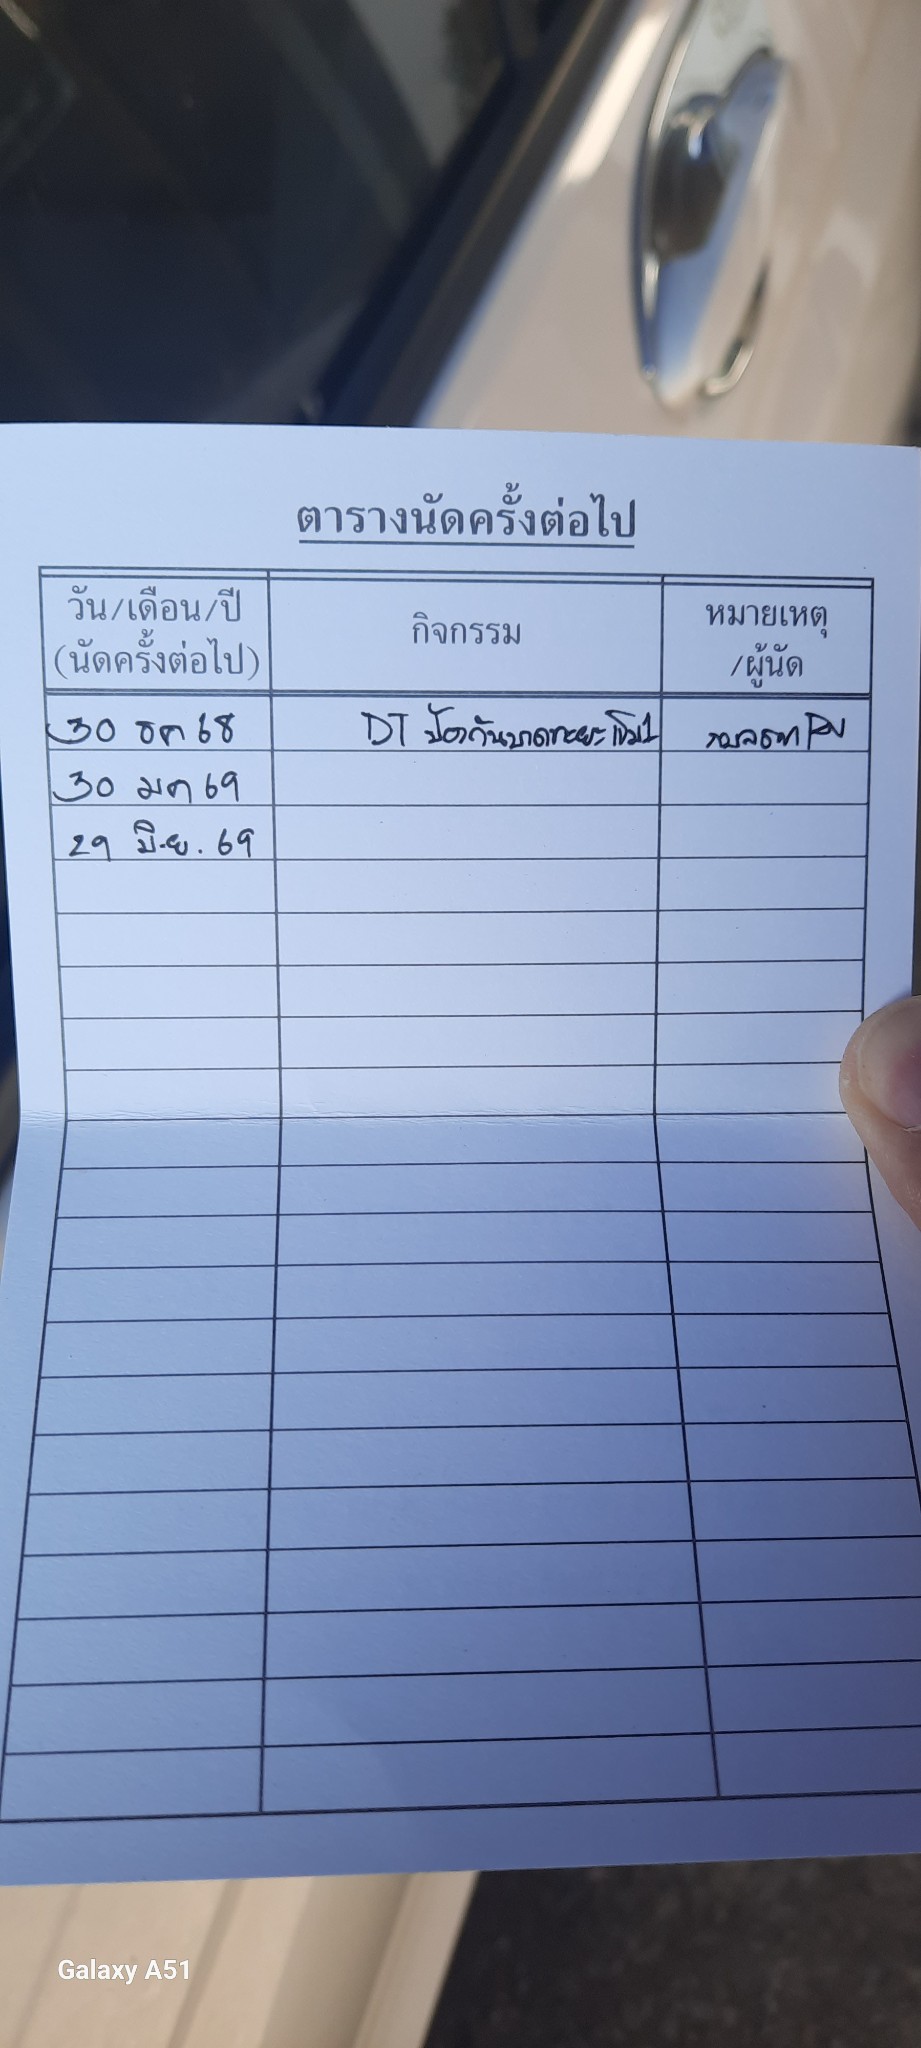 ตารางนัดครั้งต่อไป
วัน/เดือน/ปี
(นัดครั้งต่อไป)
กิจกรรม
หมายเหตุ
/ผู้นัด
30 ธค 68 DT ป้องกันบาดทะยัก เข็ม1
30 มค 69
29 มิ.ย. 69
Galaxy A51